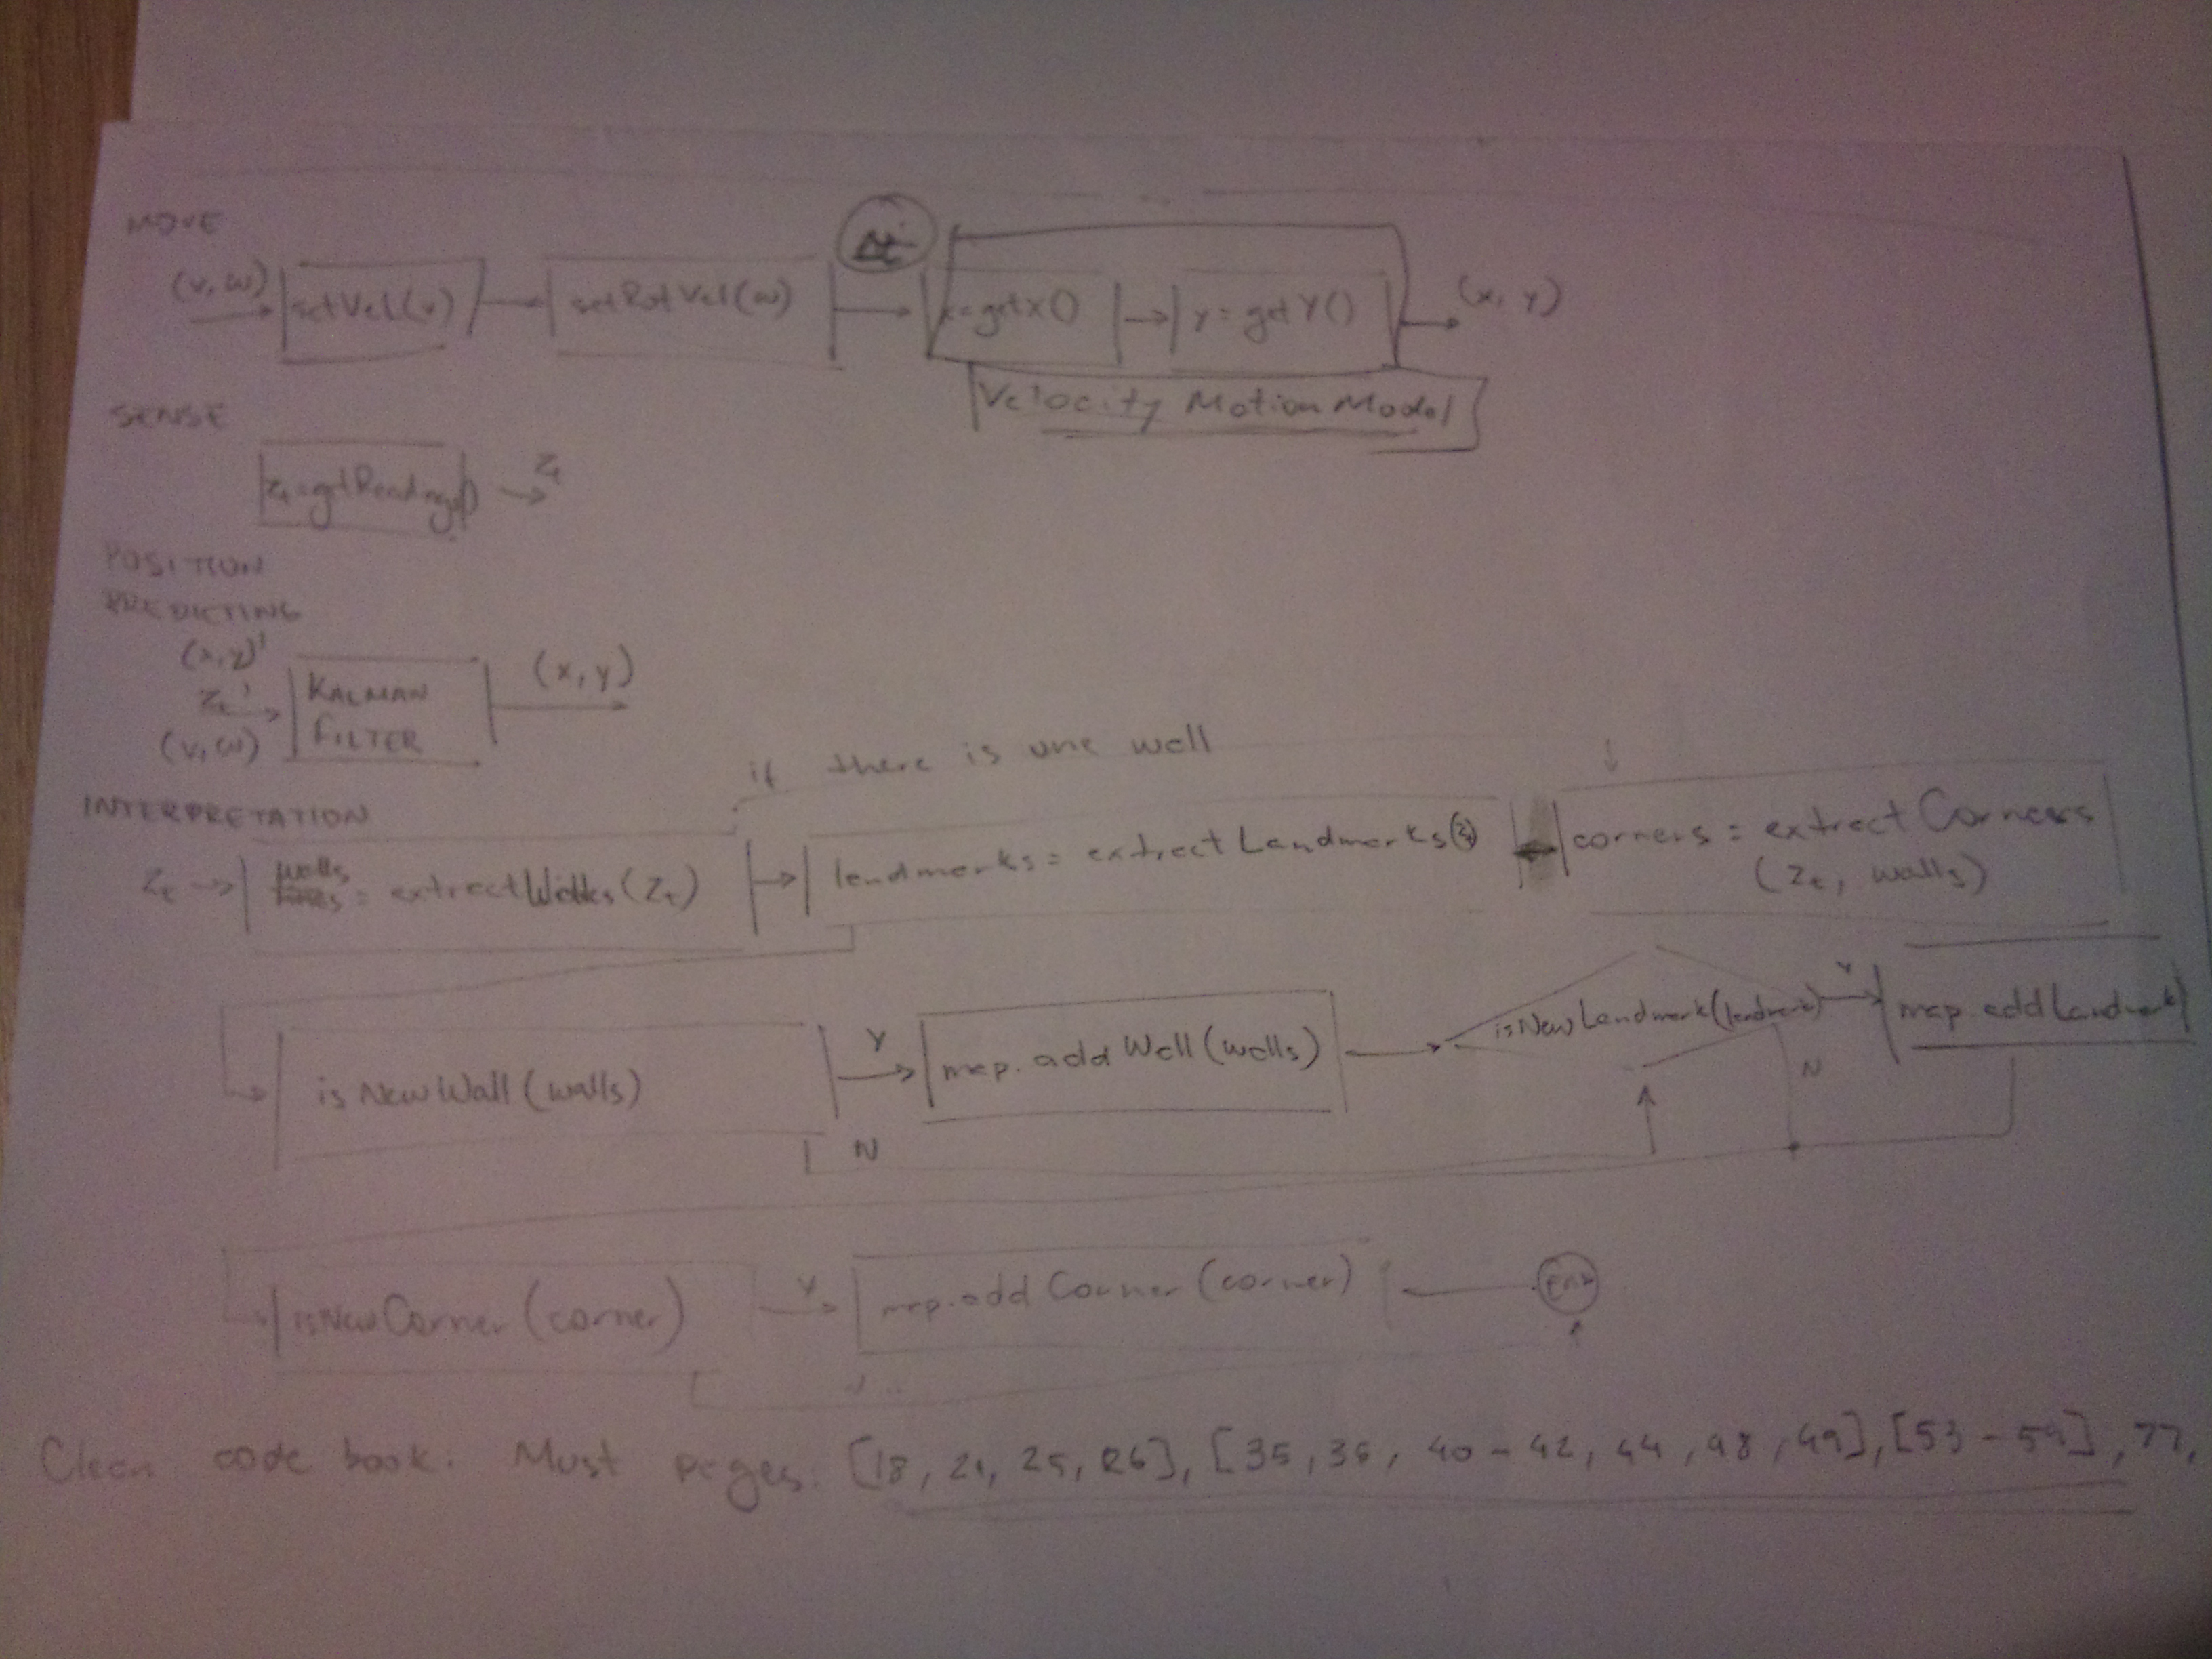 MOVE
(v, ω) setVel(v) setRotVel(ω) Δt x=getX() y=getY() (x, y)
Velocity Motion Model
SENSE
Zt=getReadings() Zt
POSITION
PREDICTING
(x,y)'
Zt' KALMAN (x,y)
(v,ω) FILTER
if there is one wall
INTERPRETATION
Zt walls = extractWalls(Zt) landmarks = extractLandmarks(Zt) corners = extractCorners
(Zt, walls)
isNewWall(walls) Y map.addWall(walls) isNewLandmark(landmark) Y map.addLandmark)
N
N
isNewCorner(corner) Y map.addCorner(corner) End
Clean code book. Must pages. [18, 21, 25, 26], [35, 36, 40-42, 44, 48, 49], [53-59], 77,